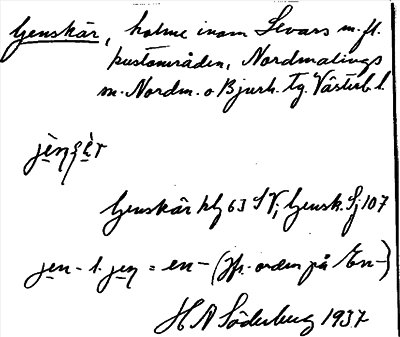 Genskär, holme inom Levars m. fl.
kustområden, Nordmalings
m. Nordm. o Bjurh. tg. Västerb. l.
Genskär hlg 63 SV; Gensk. Sj 107
jen- l. jeŋ = en- (Jfr. orden på En-)
H A Söderberg 1937